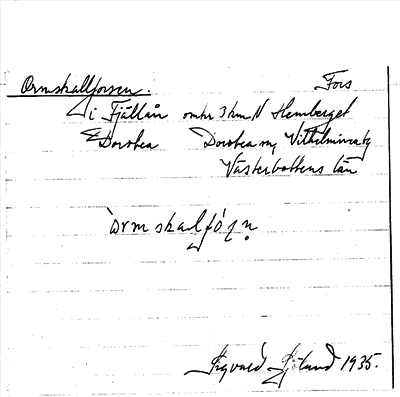 Ormskallforsen. Fors
i Fjällån omkr 3 km N Hemberget
Dorotea Dorotea sn, Vilhelmina tg
Västerbottens län
`ormskalfóʂn̥
Sigvard Sjölund 1935.